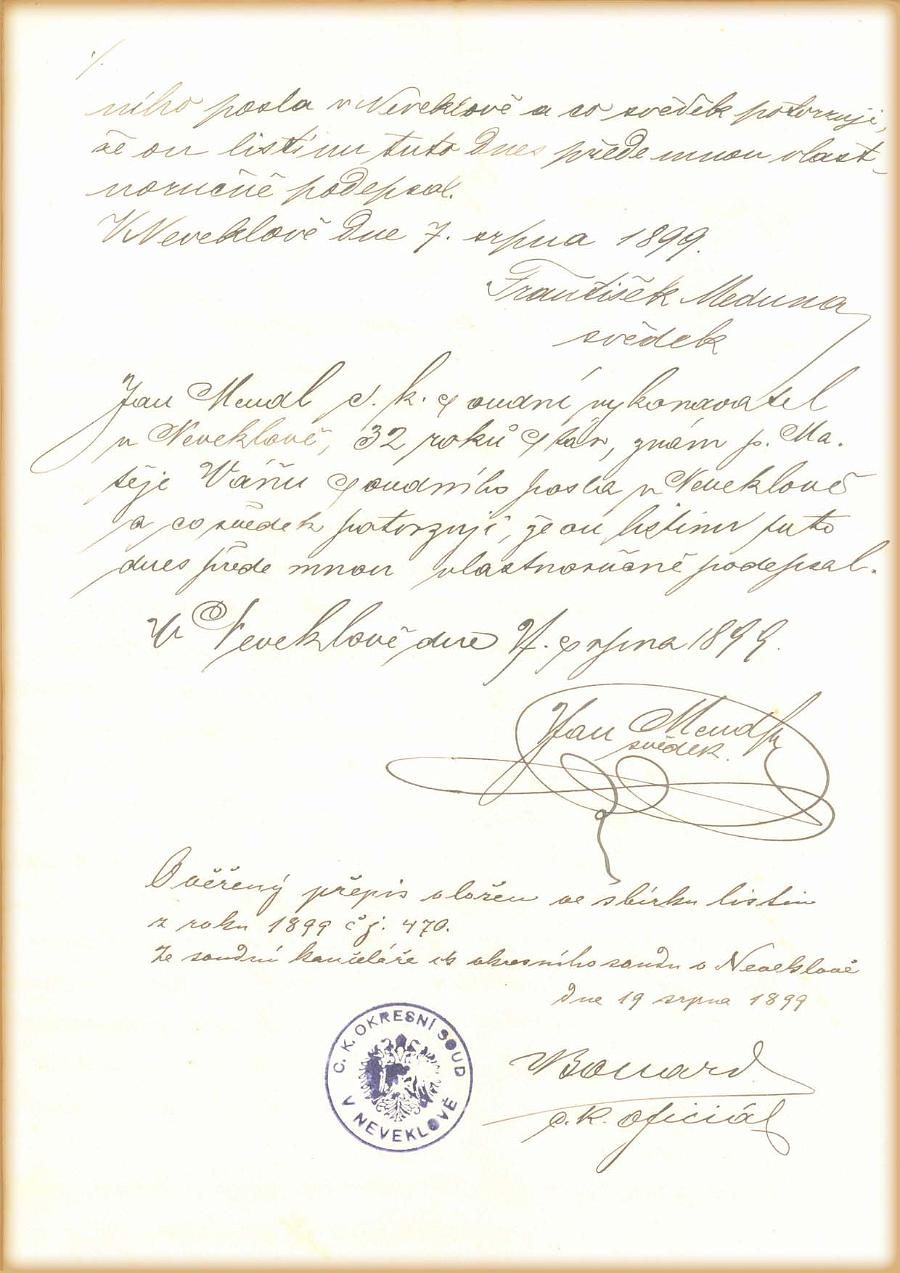 ního posla v Neveklově a co svědek potvrzuji,
že on listinu tuto dnes přede mnou vlast-
noručně podepsal.
V Neveklově dne 7. srpna 1899.
František Meduna
svědek
Jan Mendl c. k. soudní vykonavatel
v Neveklově, 32 roků stár, znám p. Ma-
těje Váňu soudního posla v Neveklově
a co svědek potvrzuji, že on listinu tuto
dnes přede mnou vlastnoručně podepsal.
V Neveklově dne 7. srpna 1899.
Jan Mendl
svědek.
Ověřený přepis vložen ve sbírku listin
z roku 1899 čj. 470.
Ze soudní kanceláře ck okresního soudu v Neveklově
dne 19 srpna 1899
C. K. OKRESNÍ SOUD
V NEVEKLOVĚ
c. k. oficiál